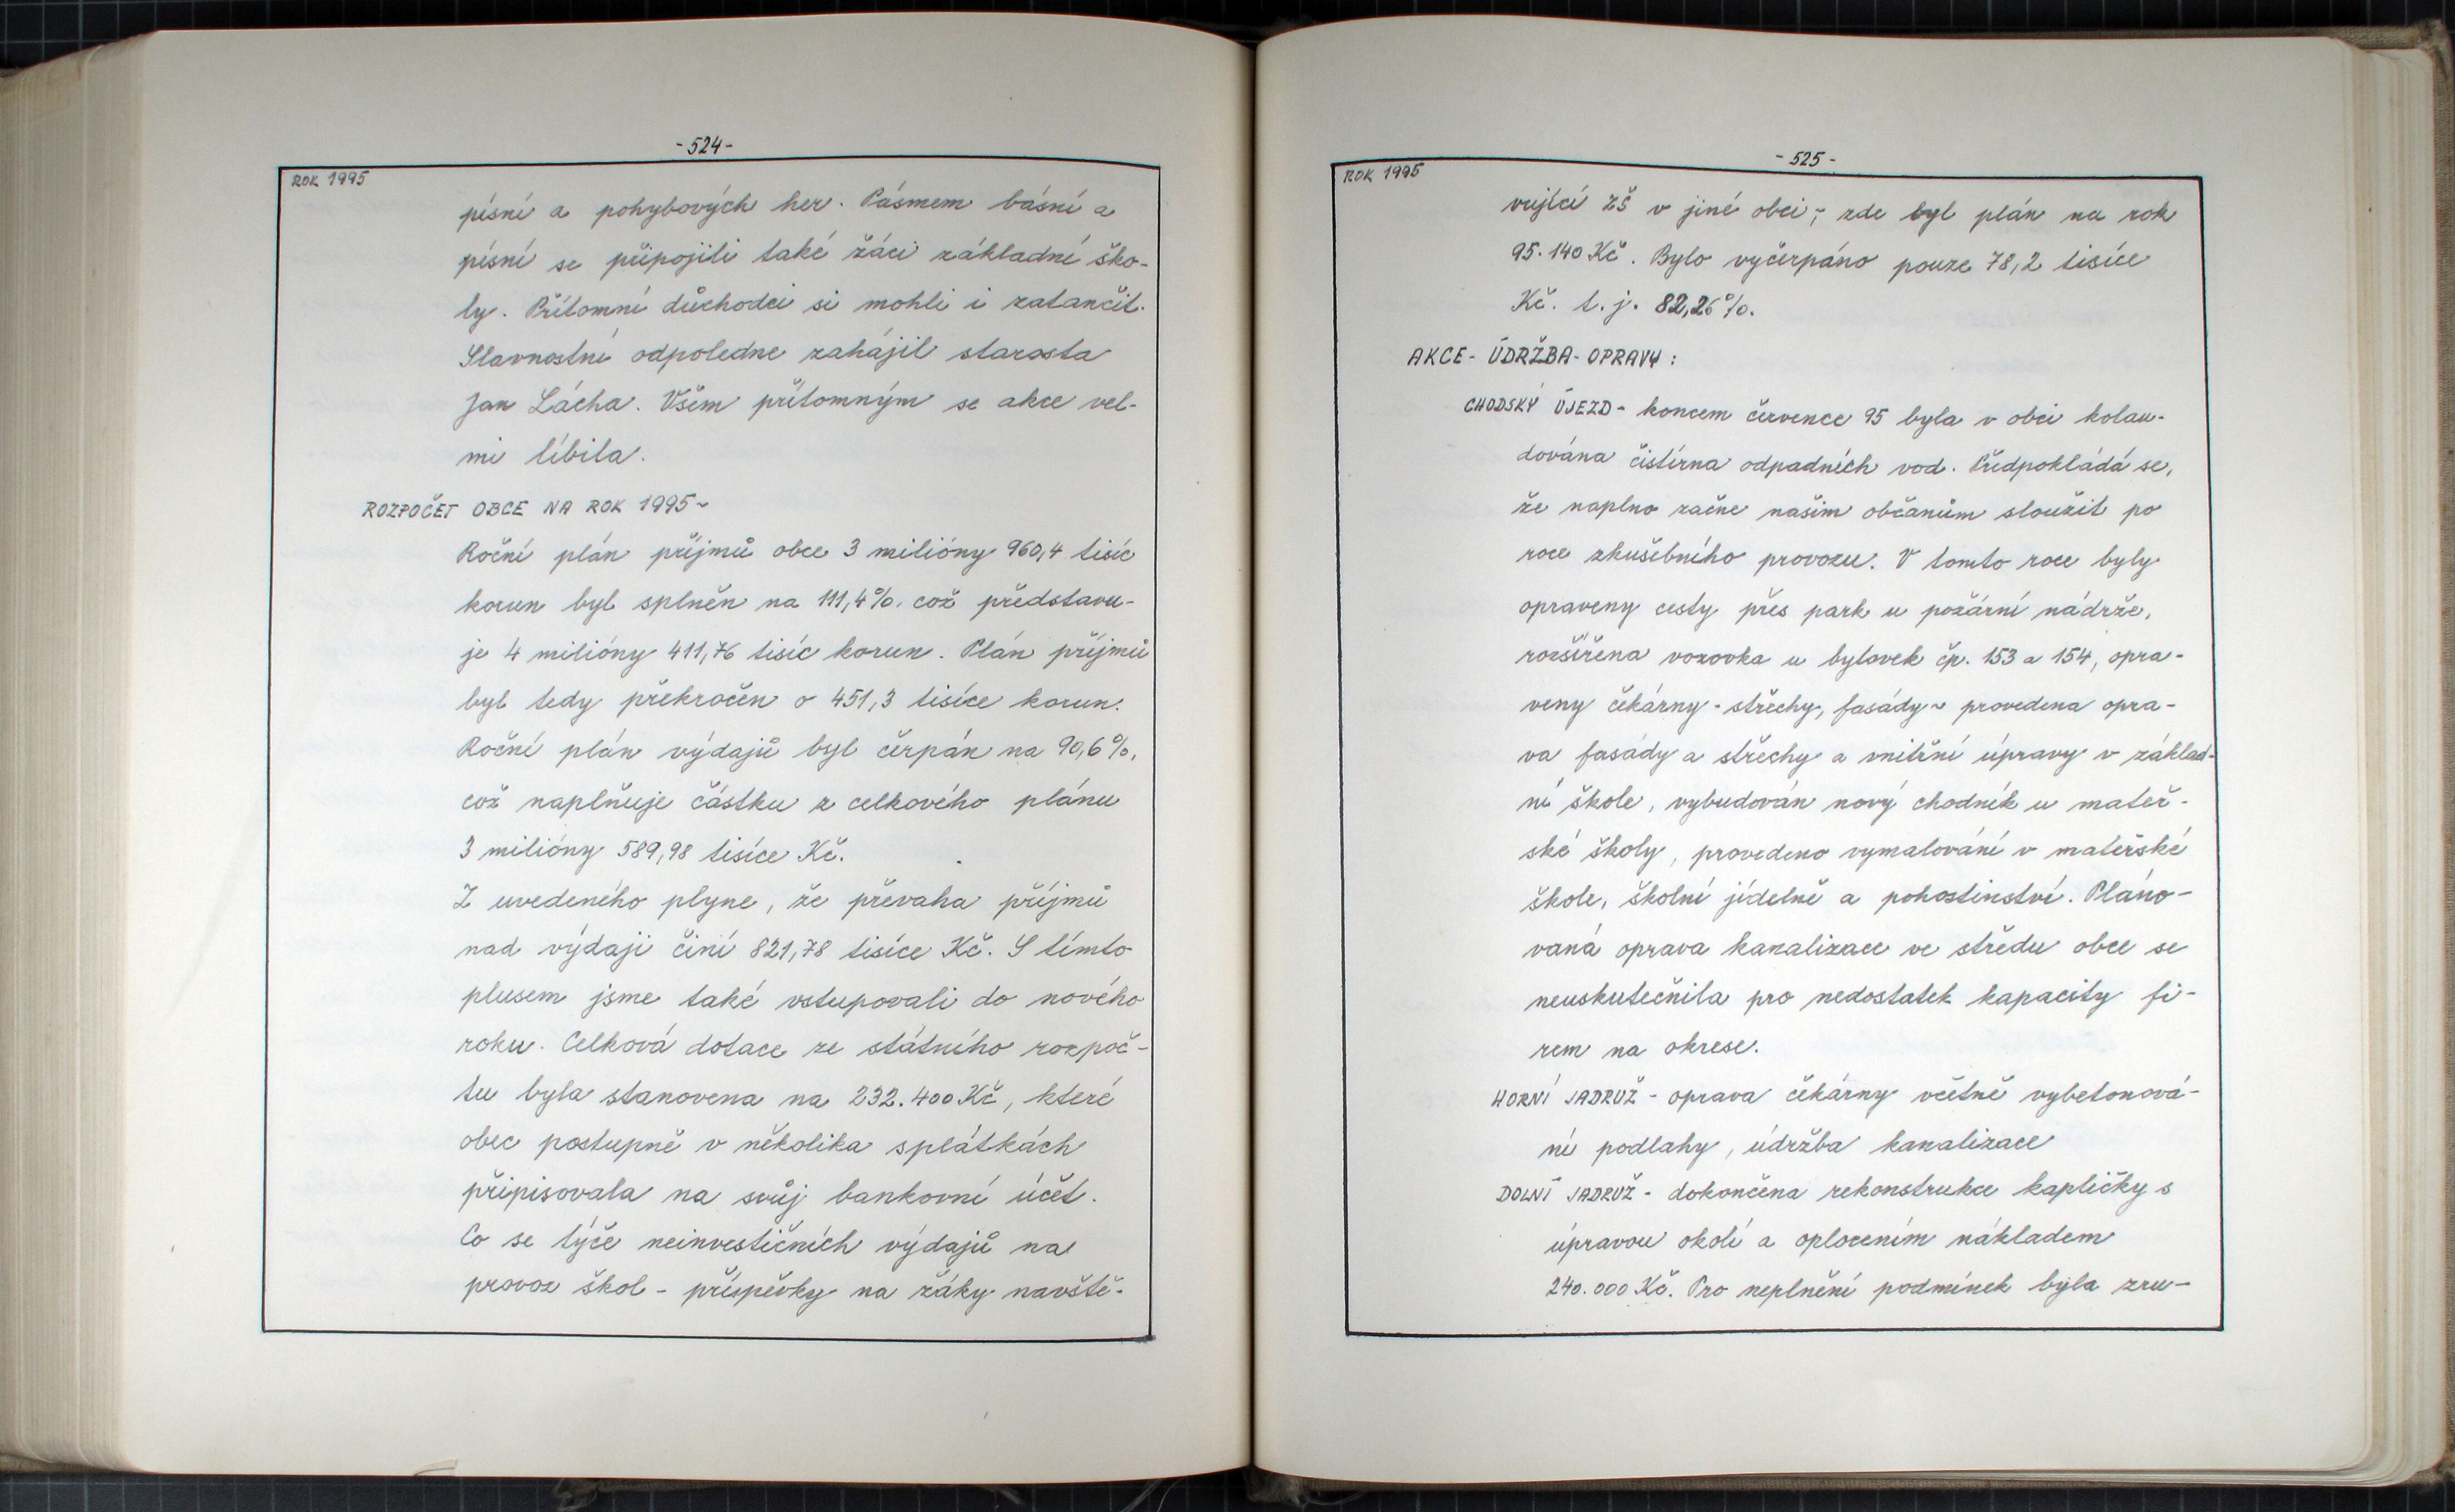 -524-
ROK 1995
písní a pohybových her. Pásmem básní a
písní se připojili také žáci základní ško-
ly. Přítomní důchodci si mohli i zatančit.
Slavnostní odpoledne zahájil starosta
Jan Lácha. Všem přítomným se akce vel-
mi líbila.
ROZPOČET OBCE NA ROK 1995~
Roční plán příjmů obce 3 milióny 960,4 tisíc
korun byl splněn na 111,4%, což představu-
je 4 milióny 411,76 tisíc korun. Plán příjmů
byl tedy překročen o 451,3 tisíce korun.
Roční plán výdajů byl čerpán na 90,6%,
což naplňuje částku z celkového plánu
3 milióny 589,98 tisíce Kč.
Z uvedeného plyne, že převaha příjmů
nad výdaji činí 821,78 tisíce Kč. S tímto
plusem jsme také vstupovali do nového
roku. Celková dotace ze státního rozpoč-
tu byla stanovena na 232.400 Kč, které
obec postupně v několika splátkách
připisovala na svůj bankovní účet.
Co se týče neinvestičních výdajů na
provoz škol - příspěvky na žáky navště-
-525-
ROK 1995
vující ZŠ v jiné obci; zde byl plán na rok
95.140 Kč. Bylo vyčerpáno pouze 78,2 tisíce
Kč. t.j. 82,26%.
AKCE - ÚDRŽBA - OPRAVY:
CHODSKÝ ÚJEZD - koncem července 95 byla v obci kolau-
dována čistírna odpadních vod. Předpokládá se,
že naplno začne našim občanům sloužit po
roce zkušebního provozu. V tomto roce byly
opraveny cesty přes park u požární nádrže,
rozšířena vozovka u bytovek čp. 153 a 154, opra-
veny čekárny - střechy, fasády ~ provedena opra-
va fasády a střechy a vnitřní úpravy v základ-
ní škole, vybudován nový chodník u mateř-
ské školy, provedeno vymalování v mateřské
škole, školní jídelně a pohostinství. Pláno-
vaná oprava kanalizace ve středu obce se
neuskutečnila pro nedostatek kapacity fi-
rem na okrese.
HORNÍ JADRUŽ - oprava čekárny včetně vybetonová-
ní podlahy, údržba kanalizace
DOLNÍ JADRUŽ - dokončena rekonstrukce kapličky s
úpravou okolí a oplocením nákladem
240.000 Kč. Pro neplnění podmínek byla zru-